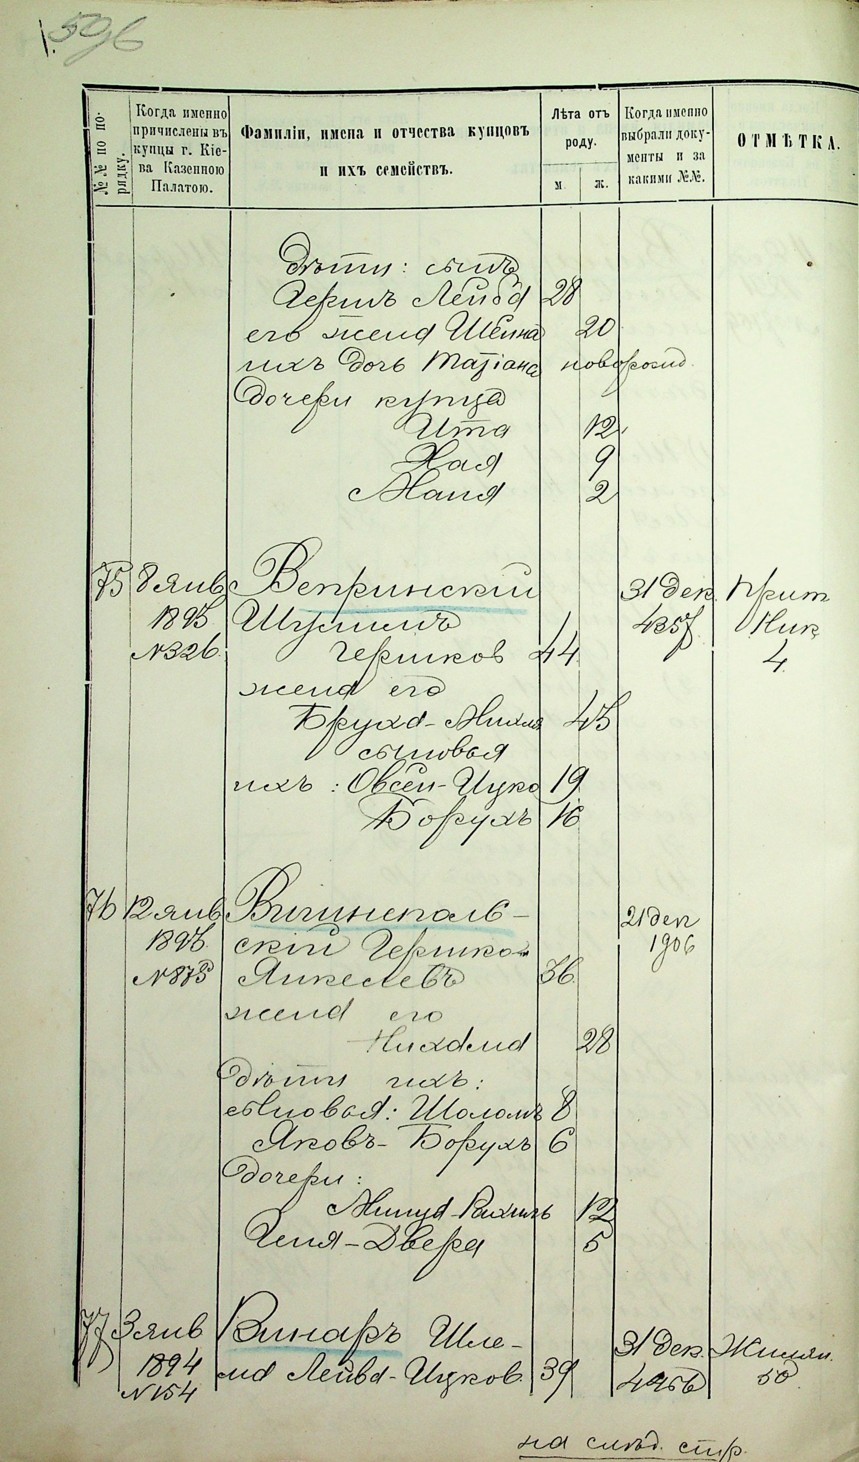 №№ по порядку.
Когда именно причислены въ купцы г. Кіева Казенною Палатою.
Фамиліи, имена и отчества купцовъ и ихъ семействъ.
Лѣта отъ роду.
м
ж.
Когда именно выбрали документы и за какими №№.
ОТМѢТКА.
Дѣти: сынъ
Гершъ Лейба 28
его жена Шейна 20
ихъ дочь Татіана новорожд.
Дочери купца
Ита 12
Хая 9
Маня 2
75 8 янв Вепринскій 31 Дек. Прит
1893 Шулимъ Ник
№326 Гершков 44 4
жена его
Бруха-Михля 43
сыновья
ихъ: Овсей-Ицко 19
Борухъ 16
76 12 янв 21 дек
1906
скій Гершко
Янкелевъ 36
жена его
Нихама 28
Дѣти ихъ:
сыновья: Шоломъ 8
Яковъ-Борухъ 6
Дочери:
12
Геня-Двера 5
77 3 янв Винаръ Шле- 31 Дек. Жилян.
1894 ма Лейба-Ицков. 39 50
№154
на слѣд. стр.